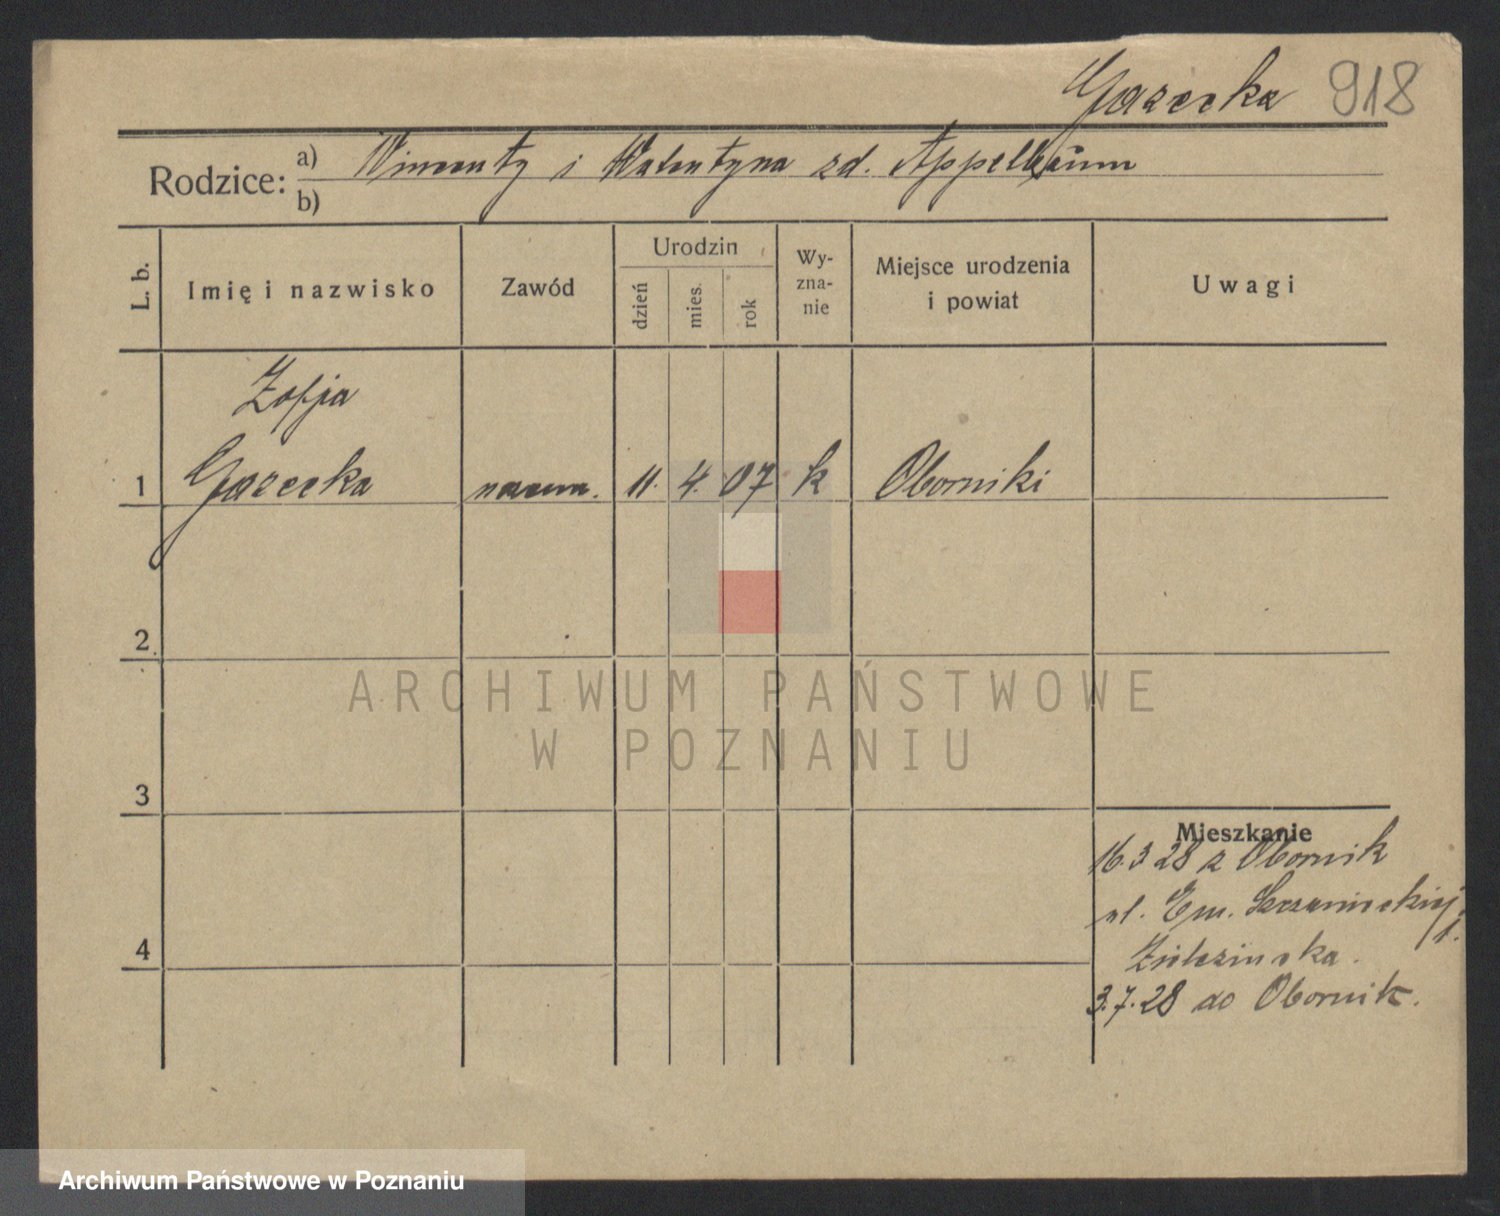 Gazecka 918
Rodzice: a) Wincenty i Walentyna zd. Appelbaum
b)
L. b. Imię i nazwisko Zawód Urodzin dzień mies. rok Wy-zna-nie Miejsce urodzenia i powiat Uwagi
Zofja
1 Gazecka 11. 4. 07 k Oborniki
2
3
4
Mieszkanie
16.3 28 z Obornik
ul. Em. Sczanieckiej 1.
3.7.28 do Obornik.
ARCHIWUM PAŃSTWOWE
W POZNANIU
Archiwum Państwowe w Poznaniu